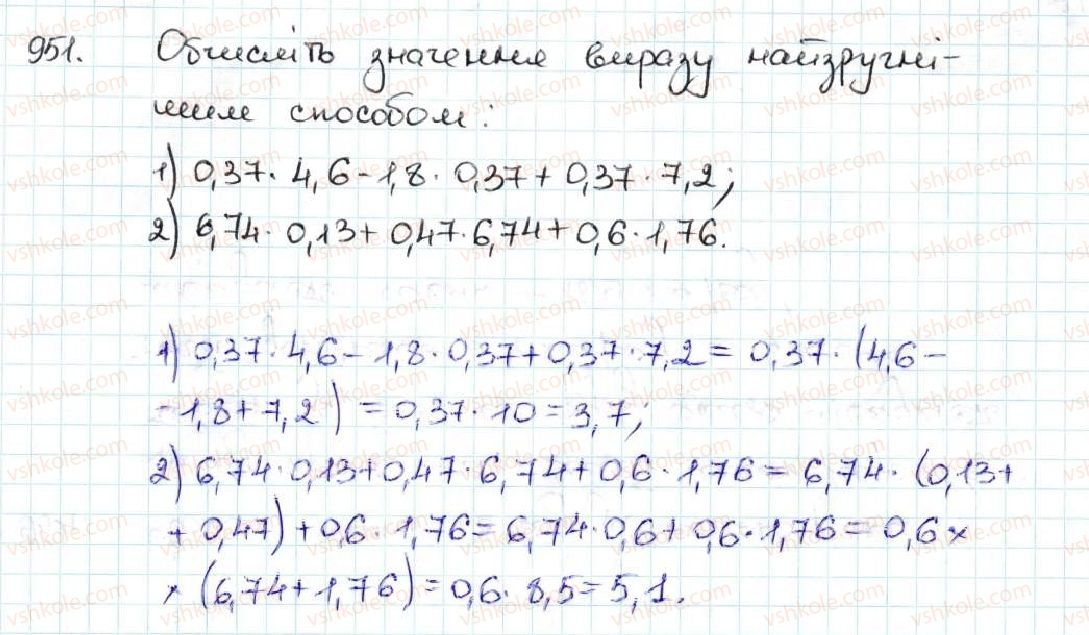 951. Обчисліть значення виразу найзручні-
шим способом:
1) 0,37 · 4,6 - 1,8 · 0,37 + 0,37 · 7,2;
2) 6,74 · 0,13 + 0,47 · 6,74 + 0,6 · 1,76.
1) 0,37 · 4,6 - 1,8 · 0,37 + 0,37 · 7,2 = 0,37 · (4,6 -
- 1,8 + 7,2) = 0,37 · 10 = 3,7;
2) 6,74 · 0,13 + 0,47 · 6,74 + 0,6 · 1,76 = 6,74 · (0,13 +
+ 0,47) + 0,6 · 1,76 = 6,74 · 0,6 + 0,6 · 1,76 = 0,6 ×
× (6,74 + 1,76) = 0,6 · 8,5 = 5,1.
vshkole.com